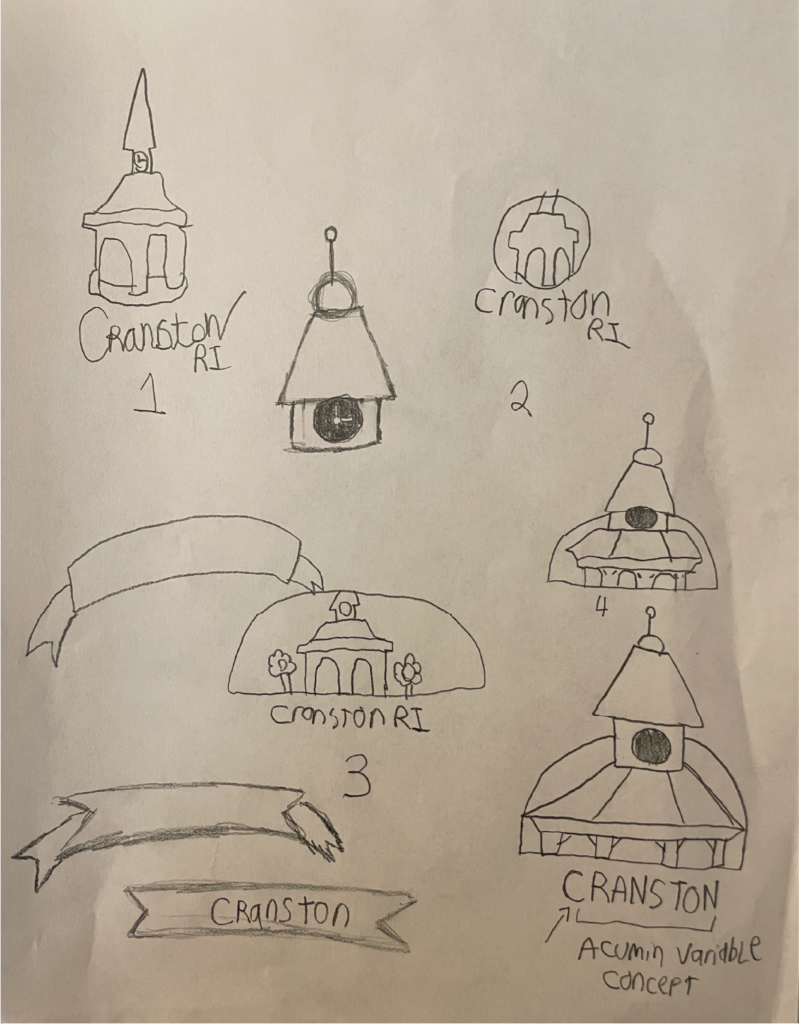 Cranston
RI
1
Cranston
RI
2
4
Cranston RI
3
Cranston
CRANSTON
Acumin Variable
Concept